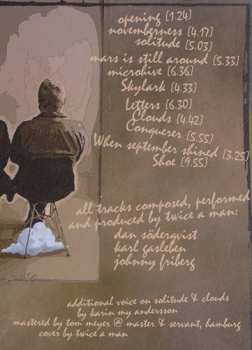 opening [1.24]
novemberness [4.17]
solitude [5.03]
mars is still around [5.33]
microhive [6.36]
Skylark [4.33]
Letters [6.30]
Clouds [4.42]
Conquerer [5.55]
When september shined [3.25]
Shoe [9.55]
all tracks composed, performed
and produced by twice a man:
dan söderqvist
karl gasleben
johnny friberg
additional voice on solitude & clouds
by karin my andersson
mastered by tom meyer @ master & servant, hamburg
cover by twice a man